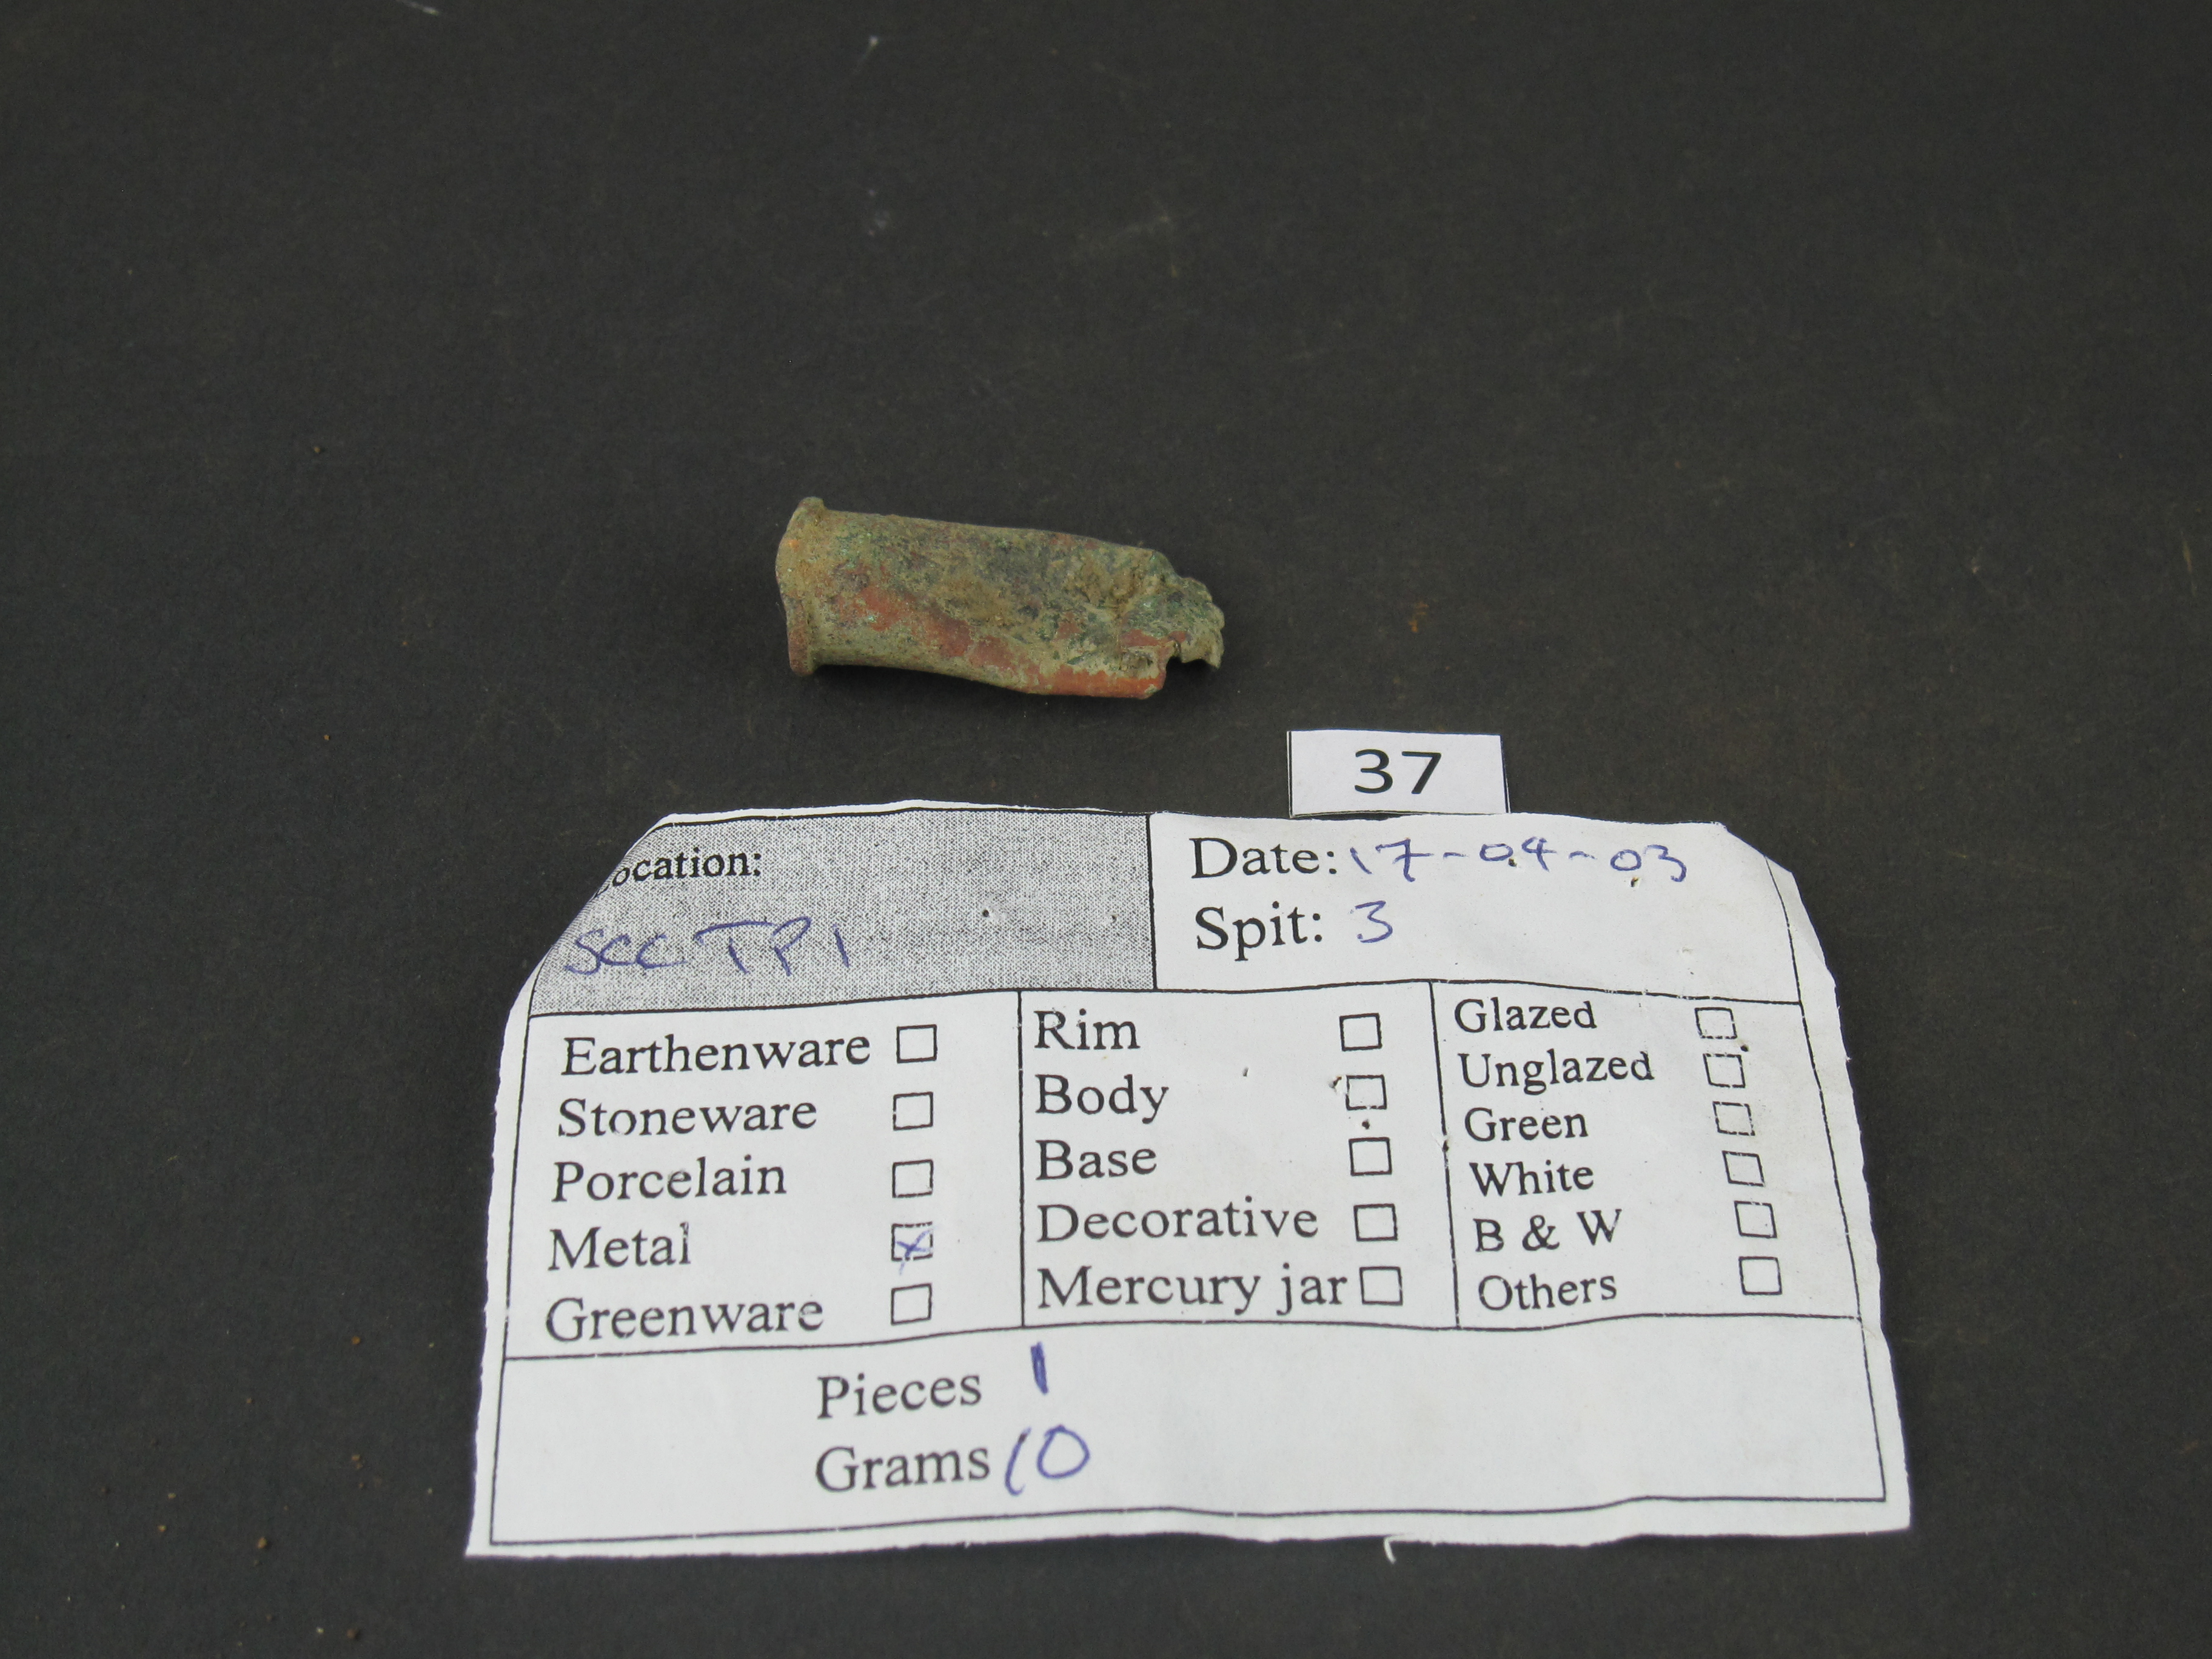 37
ocation:
SCC TP1
Date: 17-04-03
Spit: 3
Earthenware ☐
Stoneware ☐
Porcelain ☐
Metal ☒
Greenware ☐
Rim ☐
Body ☐
Base ☐
Decorative ☐
Mercury jar ☐
Glazed ☐
Unglazed ☐
Green ☐
White ☐
B & W ☐
Others ☐
Pieces 1
Grams 10